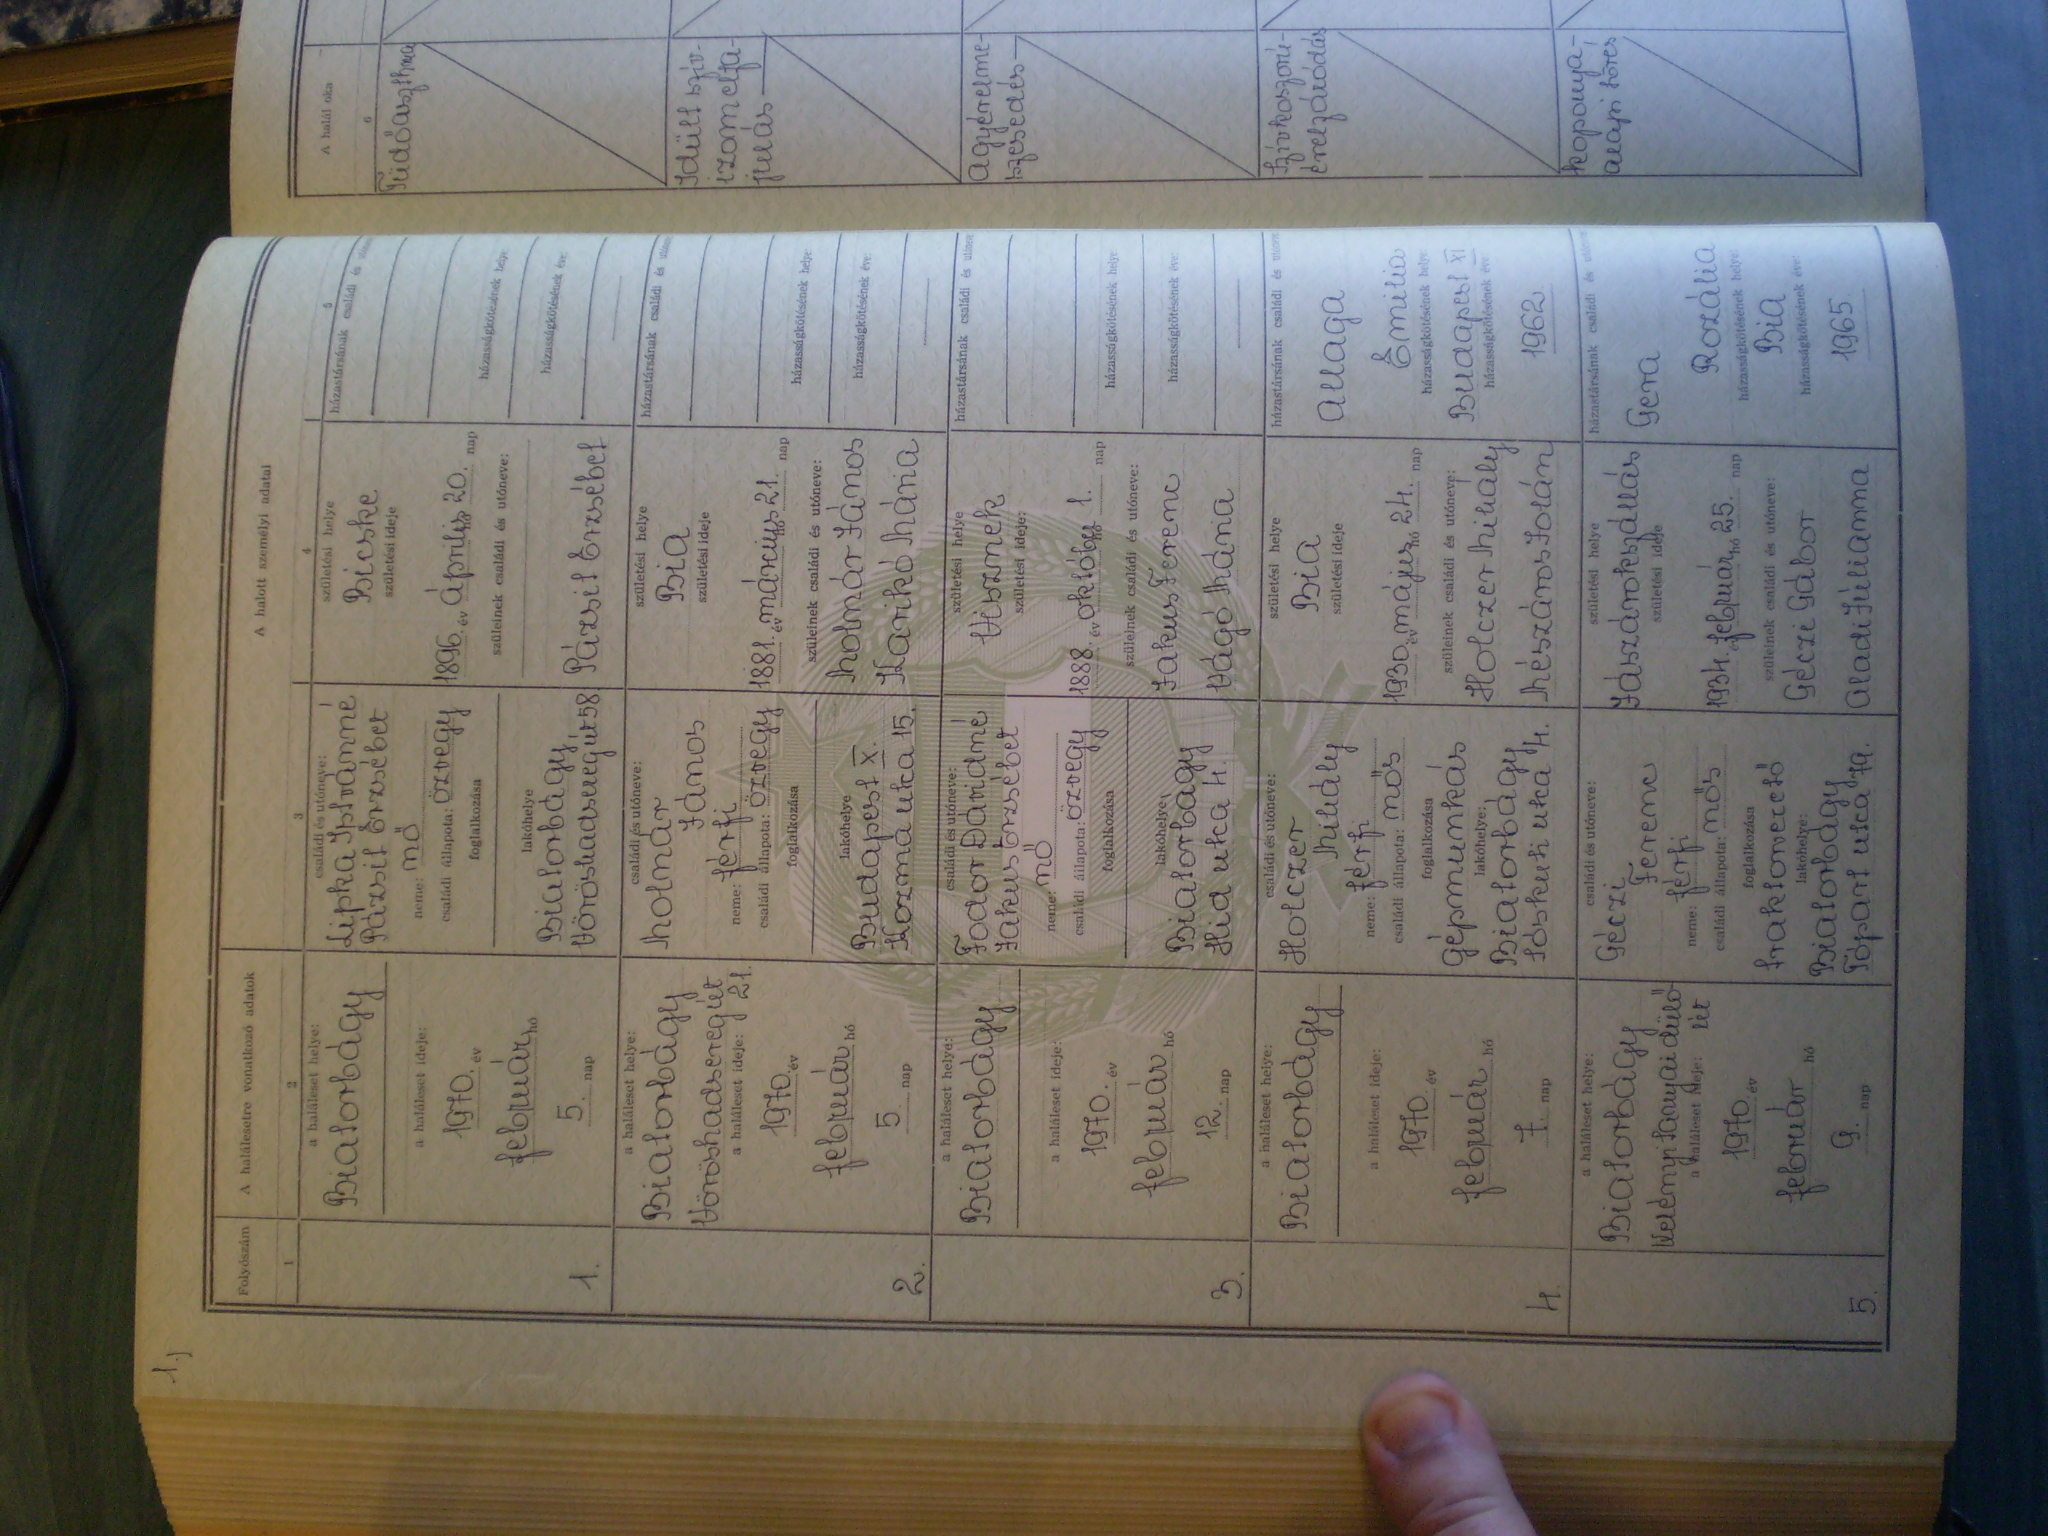 1.)
Folyószám
A halálesetre vonatkozó adatok
A halott személyi adatai
A halál oka
1
2
3
4
5
6
a haláleset helye:
Biatorbágy
a haláleset ideje:
1970. év
február hó
5. nap
családi és utóneve:
Lipka Istvánné
Pázsit Erzsébet
neme: nő
családi állapota: özvegy
foglalkozása
lakóhelye
Biatorbágy,
Vöröshadsereg út 58
születési helye
Bicske
születési ideje
1896. év április hó 20. nap
szüleinek családi és utóneve:
Pázsit Erzsébet
házastársának családi és
házasságkötésének helye:
házasságkötésének éve:
Tüdőasztma
1.
a haláleset helye:
Biatorbágy
Vöröshadsereg út
a haláleset ideje: 21.
1970. év
február hó
5. nap
családi és utóneve:
Molnár
János
neme: férfi
családi állapota: özvegy
foglalkozása
lakóhelye
Budapest X.
Kozma utca 15.
születési helye
Bia
születési ideje
1881. év március hó 21. nap
szüleinek családi és utóneve:
Molnár János
Karikó Mária
házastársának családi és
házasságkötésének helye:
házasságkötésének éve:
Idült szív-
izom elfa-
julás
2.
a haláleset helye:
Biatorbágy
a haláleset ideje:
1970. év
február hó
12. nap
családi és utóneve:
Fodor Dávidné
Jakus Erzsébet
neme: nő
családi állapota: özvegy
foglalkozása
lakóhelye:
Biatorbágy
Hid utca 4.
születési helye
Visznek
születési ideje:
1888. év október hó 1. nap
szüleinek családi és utóneve:
Jakus Ferenc
Vágó Mária
házastársának családi és
házasságkötésének helye:
házasságkötésének éve:
Agyérelme-
szesedés
3.
a haláleset helye:
Biatorbágy
a haláleset ideje:
1970. év
február hó
7. nap
családi és utóneve:
Holczer
Mihály
neme: férfi
családi állapota: nős
foglalkozása
gépmunkás
lakóhelye:
Biatorbágy
Sóskuti utca 4.
születési helye
Bia
születési ideje
1930. év május hó 24. nap
szüleinek családi és utóneve:
Holczer Mihály
Mészáros Zolán
házastársának családi és
Allaga
Emilia
házasságkötésének helye:
Budapest XI
házasságkötésének éve:
1962.
Szívkoszorú-
érelzáródás
4.
a haláleset helye:
Biatorbágy
a haláleset ideje:
1970. év
február hó
9. nap
családi és utóneve:
Géczi
Ferenc
neme: férfi
családi állapota: nős
foglalkozása
traktorvezető
lakóhelye:
Biatorbágy
Tópart utca
születési helye
Jászárokszállás
születési ideje
1934. év február hó 25. nap
szüleinek családi és utóneve:
Géczi Gábor
Aladi Julianna
házastársának családi és
Gera
Rozália
házasságkötésének helye:
Bia
házasságkötésének éve:
1965.
koponya-
alapi törés
5.